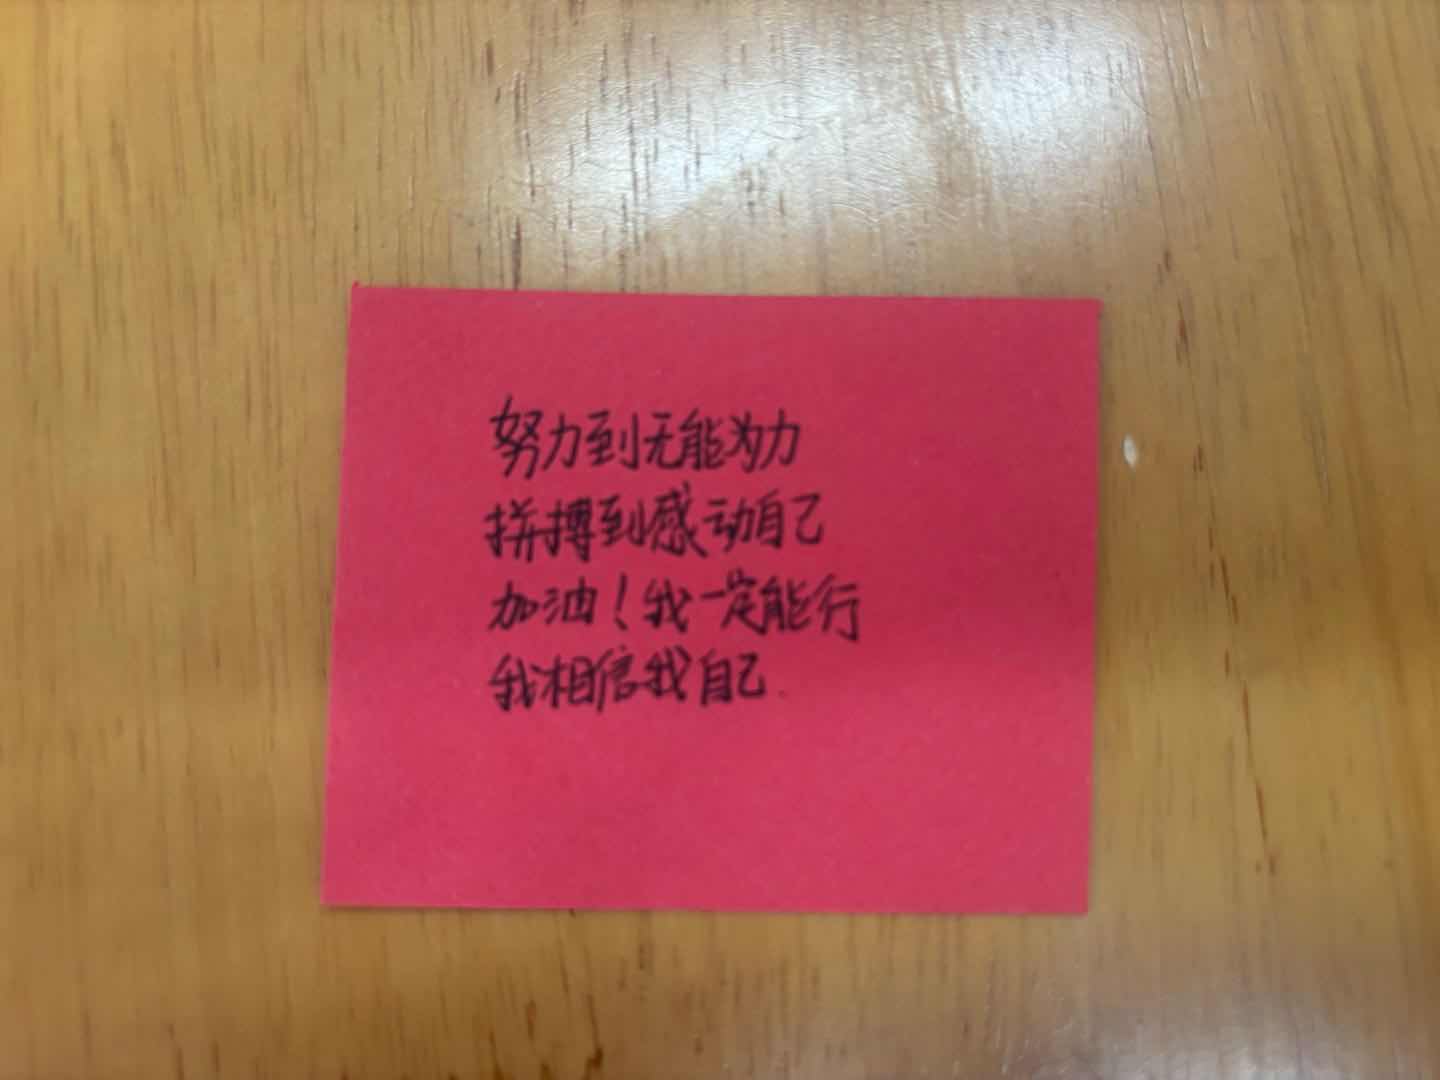 努力到无能为力
拼搏到感动自己
加油！我一定能行
我相信我自己.